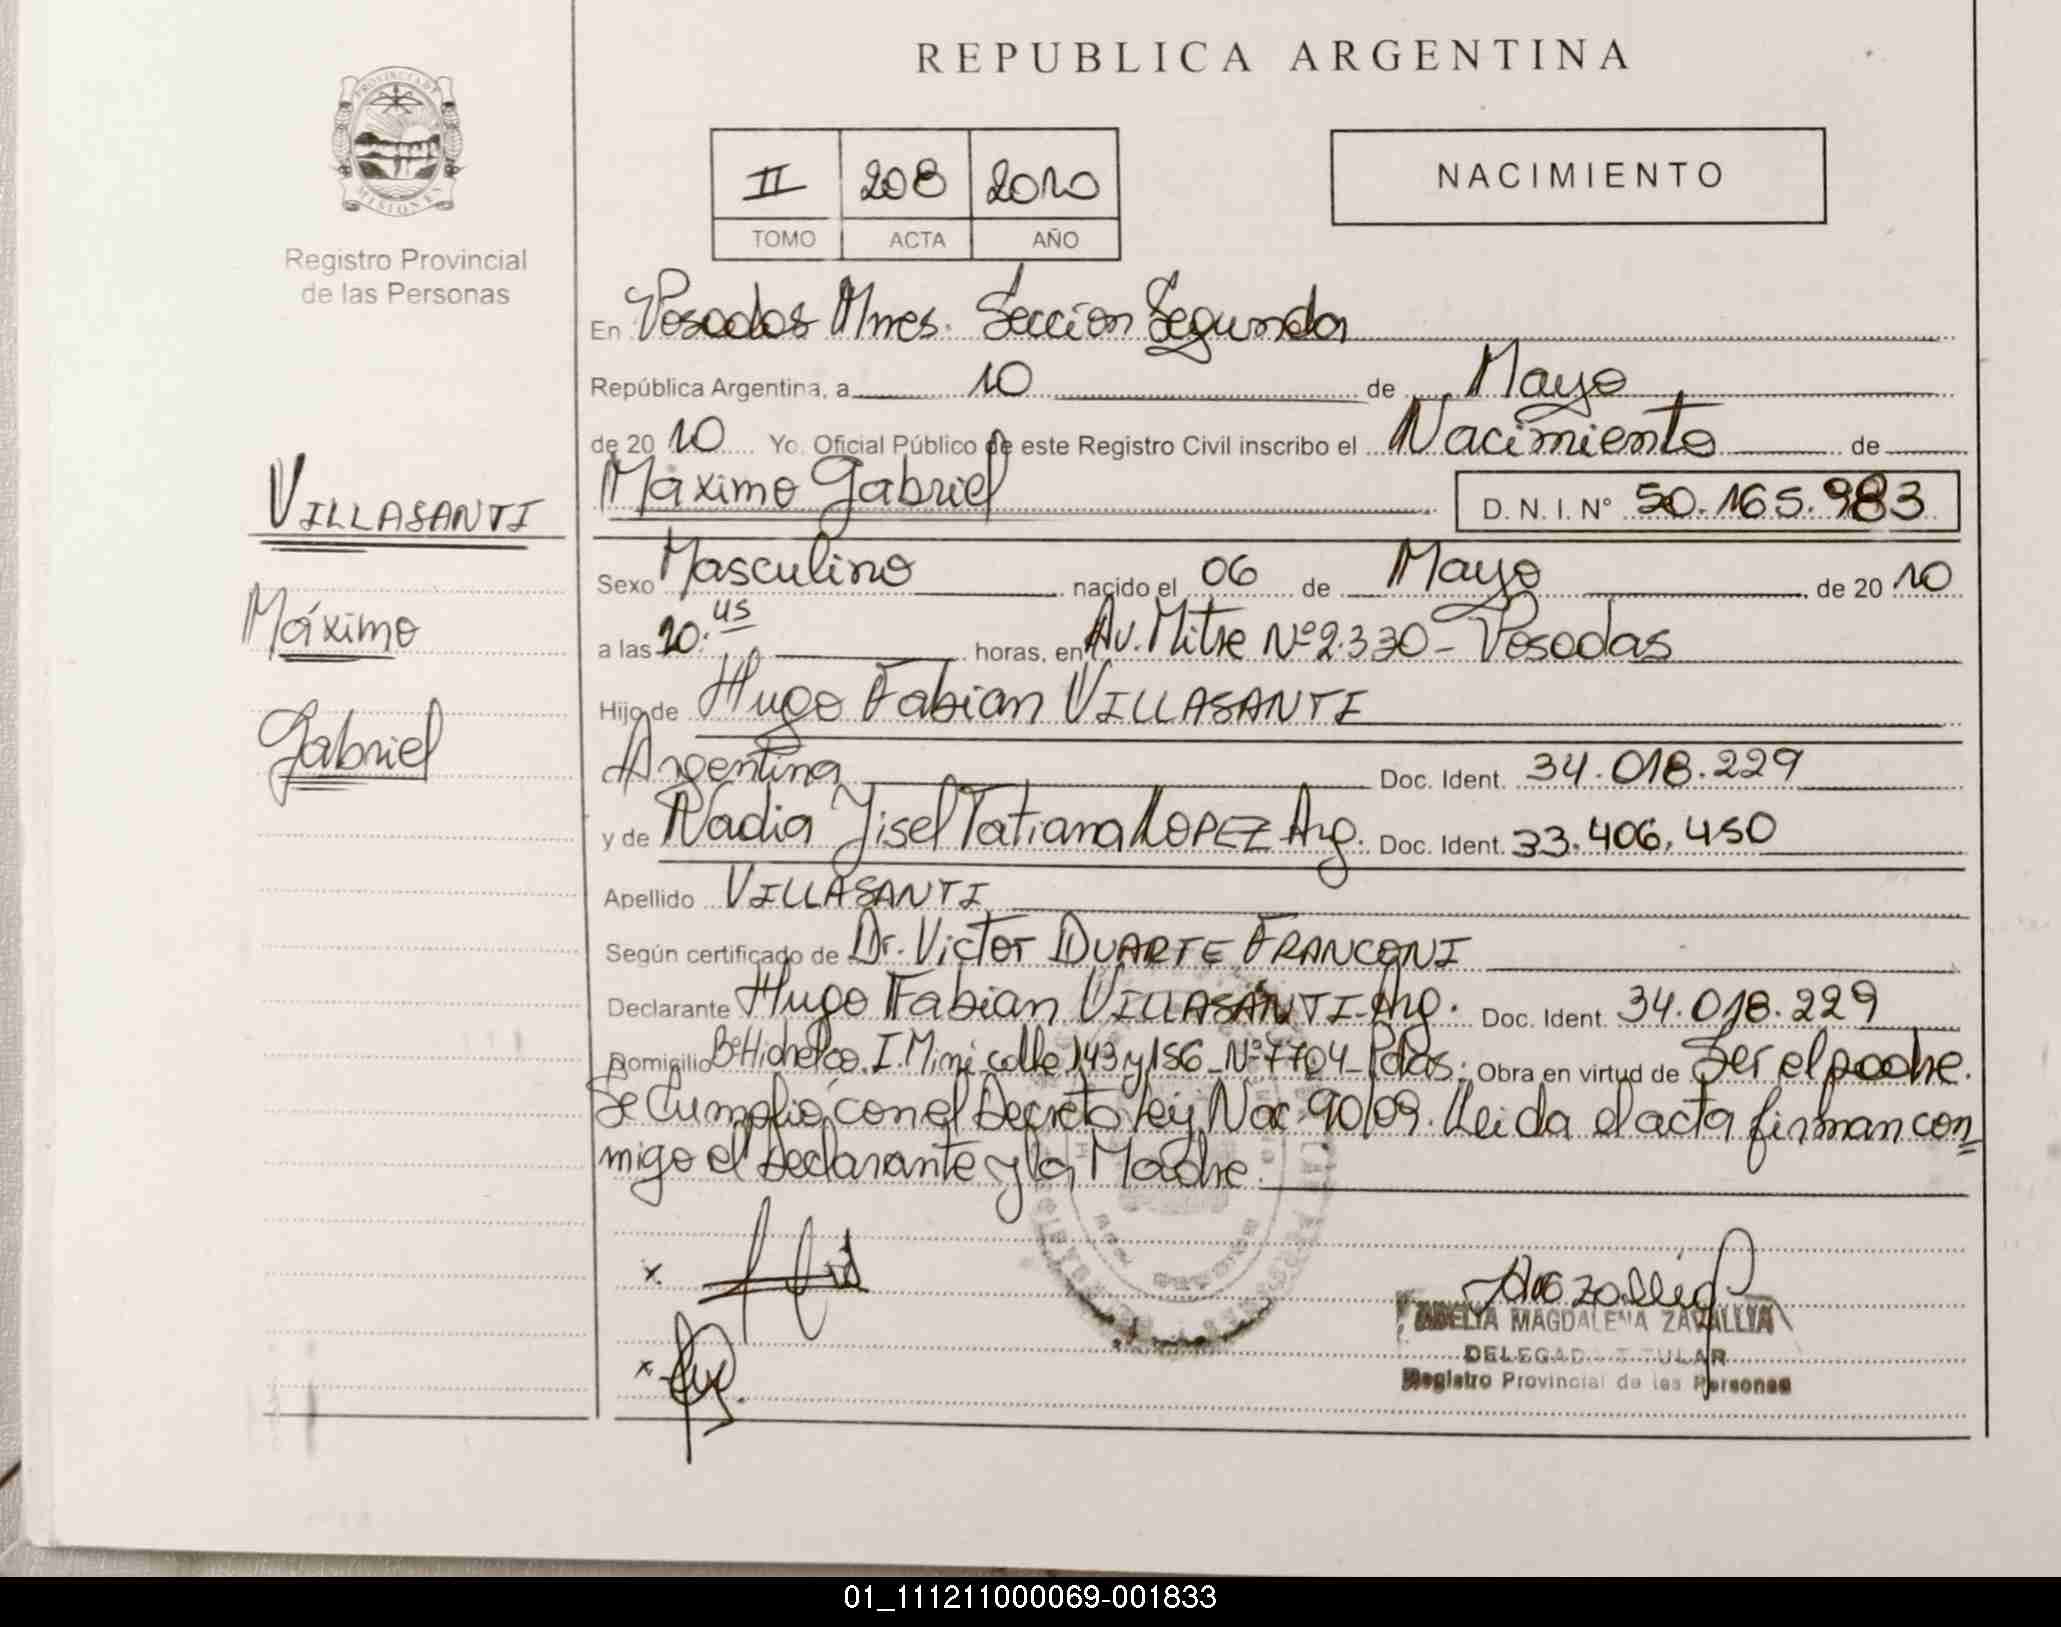 REPUBLICA ARGENTINA
PROVINCIA DE
MISIONES
Registro Provincial
de las Personas
II 208 2010
TOMO ACTA AÑO
NACIMIENTO
En Posadas Mnes. Sección Segunda
República Argentina, a 10 de Mayo
de 20 10 Yo, Oficial Público de este Registro Civil inscribo el Nacimiento de
Máximo Gabriel D. N. I. Nº 50.165.983
VILLASANTI
Máximo
Gabriel
Sexo Masculino nacido el 06 de Mayo de 20 10
a las horas, en Av. Mitre Nº 2.330 - Posadas
Hijo de Hugo Fabian VILLASANTI
Argentina Doc. Ident. 34.018.229
y de Nadia Jisel Tatiana LOPEZ Arg. Doc. Ident. 33.406.450
Apellido VILLASANTI
Según certificado de Dr. Victor DUARTE FRANCONI
Declarante Hugo Fabian VILLASANTI - Arg. Doc. Ident. 34.018.229
Domicilio I. Miní calle 143 y 156 - Nº 7704 - Pdas. Obra en virtud de Ser el padre.
Se Cumplió con el Decreto Ley Nac. 90/09. Leida el acta firman con=
migo el Declarante y la Madre.
x
x
ADELYA MAGDALENA ZAVALLYA
DELEGADA TITULAR
Registro Provincial de las Personas
01_111211000069-001833